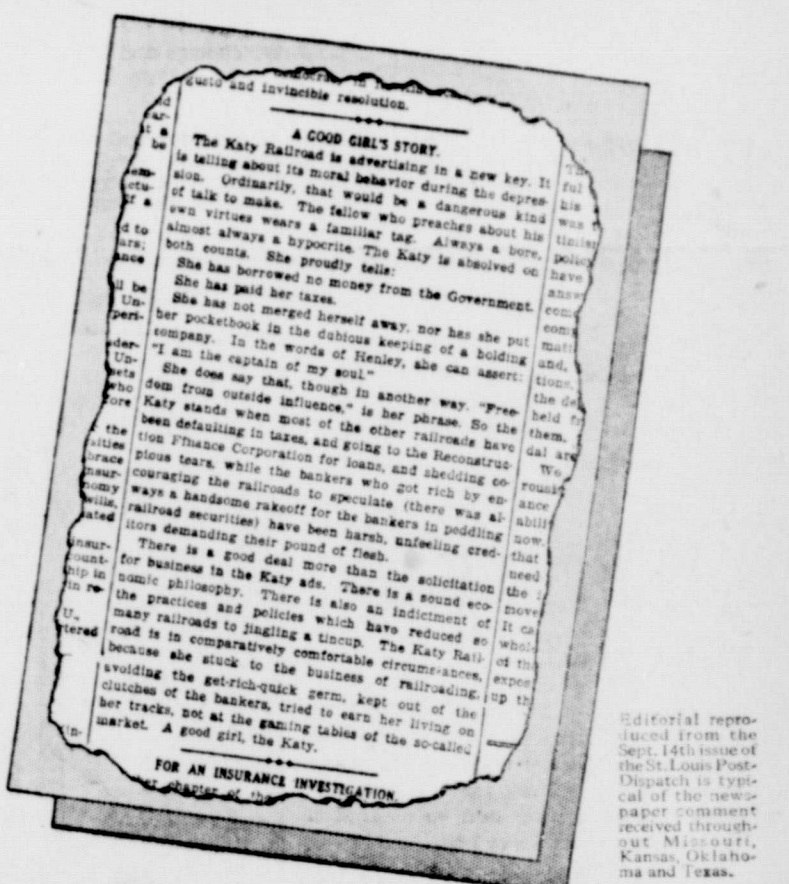 gusto and invincible resolution.
A GOOD GIRL'S STORY.
The Katy Railroad is advertising in a new key. It
is telling about its moral behavior during the depres-
sion. Ordinarily, that would be a dangerous kind
of talk to make. The fellow who preaches about his
own virtues wears a familiar tag. Always a bore,
almost always a hypocrite. The Katy is absolved on
both counts. She proudly tells:
She has borrowed no money from the Government.
She has paid her taxes.
She has not merged herself away, nor has she put
her pocketbook in the dubious keeping of a holding
company. In the words of Henley, she can assert:
"I am the captain of my soul."
She does say that, though in another way. "Free-
dom from outside influence," is her phrase. So the
Katy stands when most of the other railroads have
been defaulting in taxes, and going to the Reconstruc-
tion Ffnance Corporation for loans, and shedding co-
pious tears, while the bankers who got rich by en-
couraging the railroads to speculate (there was al-
ways a handsome rakeoff for the bankers in peddling
railroad securities) have been harsh, unfeeling cred-
itors demanding their pound of flesh.
There is a good deal more than the solicitation
for business in the Katy ads. There is a sound eco-
nomic philosophy. There is also an indictment of
the practices and policies which have reduced so
many railroads to jingling a tincup. The Katy Rail-
road is in comparatively comfortable circumstances,
because she stuck to the business of railroading,
avoiding the get-rich-quick germ, kept out of the
clutches of the bankers, tried to earn her living on
her tracks, not at the gaming tables of the so-called
market. A good girl, the Katy.
FOR AN INSURANCE INVESTIGATION.
chapter of the
Editorial repro-
duced from the
Sept. 14th issue of
the St. Louis Post-
Dispatch is typi-
cal of the news-
paper comment
received through-
out Missouri,
Kansas, Oklaho-
ma and Texas.